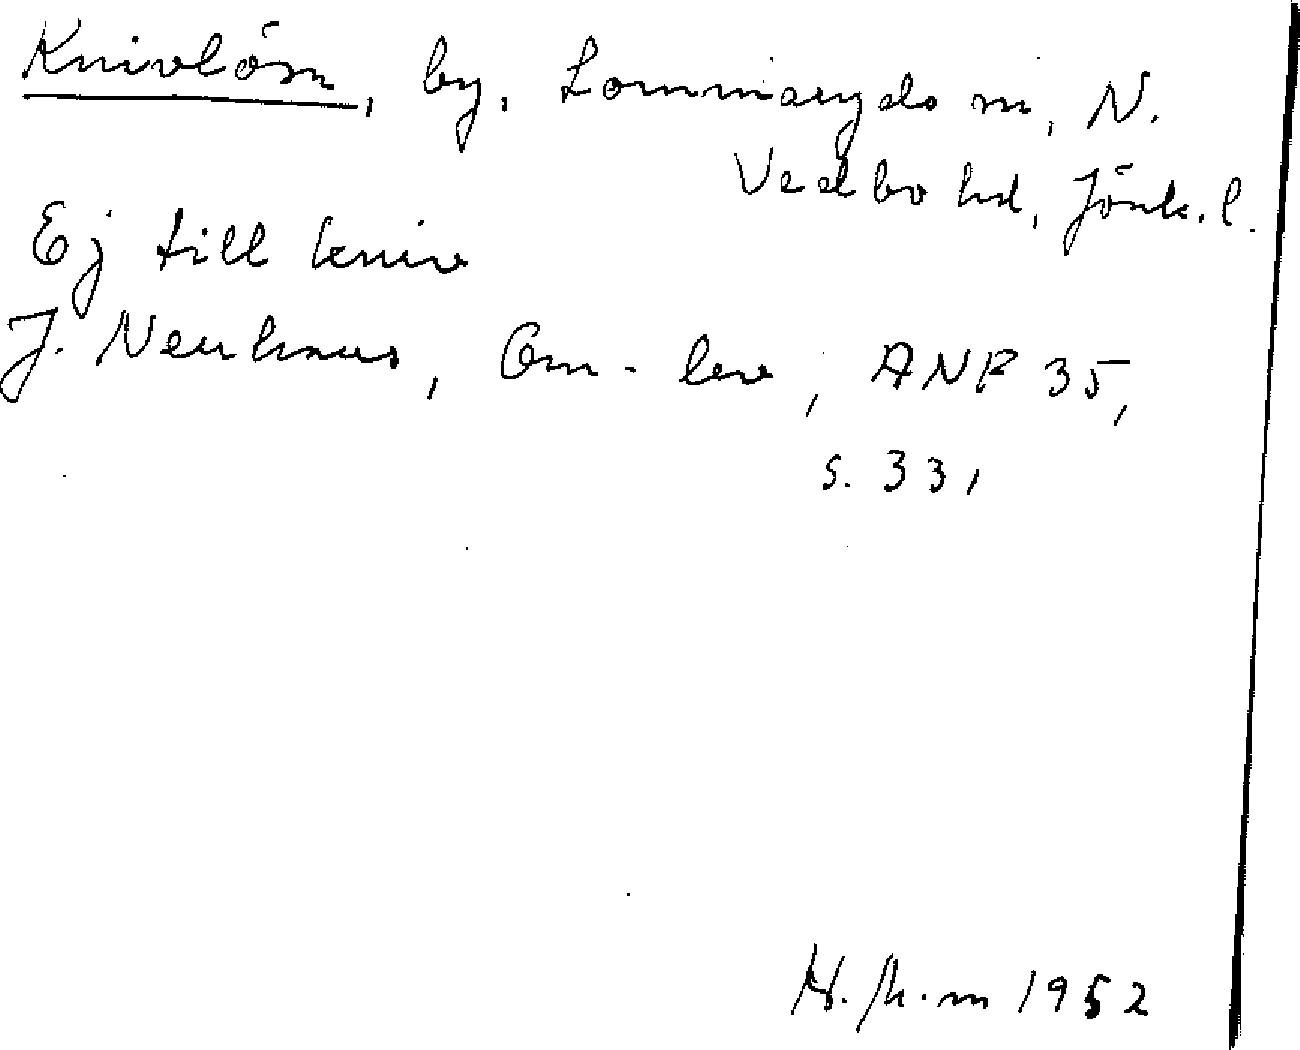 Knivlösa, by, Lommaryds sn, N.
Vedbo hd, Jönk. l.
Ej till kniv
J. Neuhaus, Om -lev, ANF 35,
s. 331
H. 1952